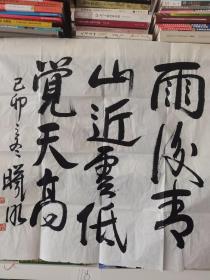 雨後青
山近雲低
覺天高
己卯之冬